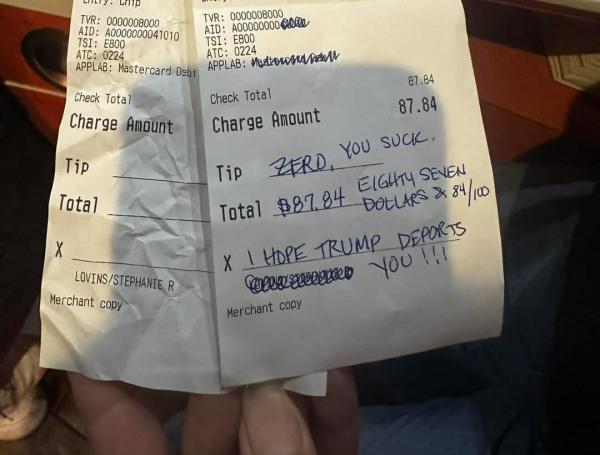 Entry: Chip
TVR: 0000008000
AID: A0000000041010
TSI: E800
ATC: 0224
APPLAB: Mastercard Debi
Check Total
Charge Amount
Tip
Total
X
LOVINS/STEPHANIE R
Merchant copy
TVR: 0000008000
AID: A00000000
TSI: E800
ATC: 0224
APPLAB:
Check Total 87.84
Charge Amount 87.84
Tip ZERO, YOU SUCK.
Total $87.84 EIGHTY SEVEN
DOLLARS & 84/100
X I HOPE TRUMP DEPORTS
YOU!!!
Merchant copy